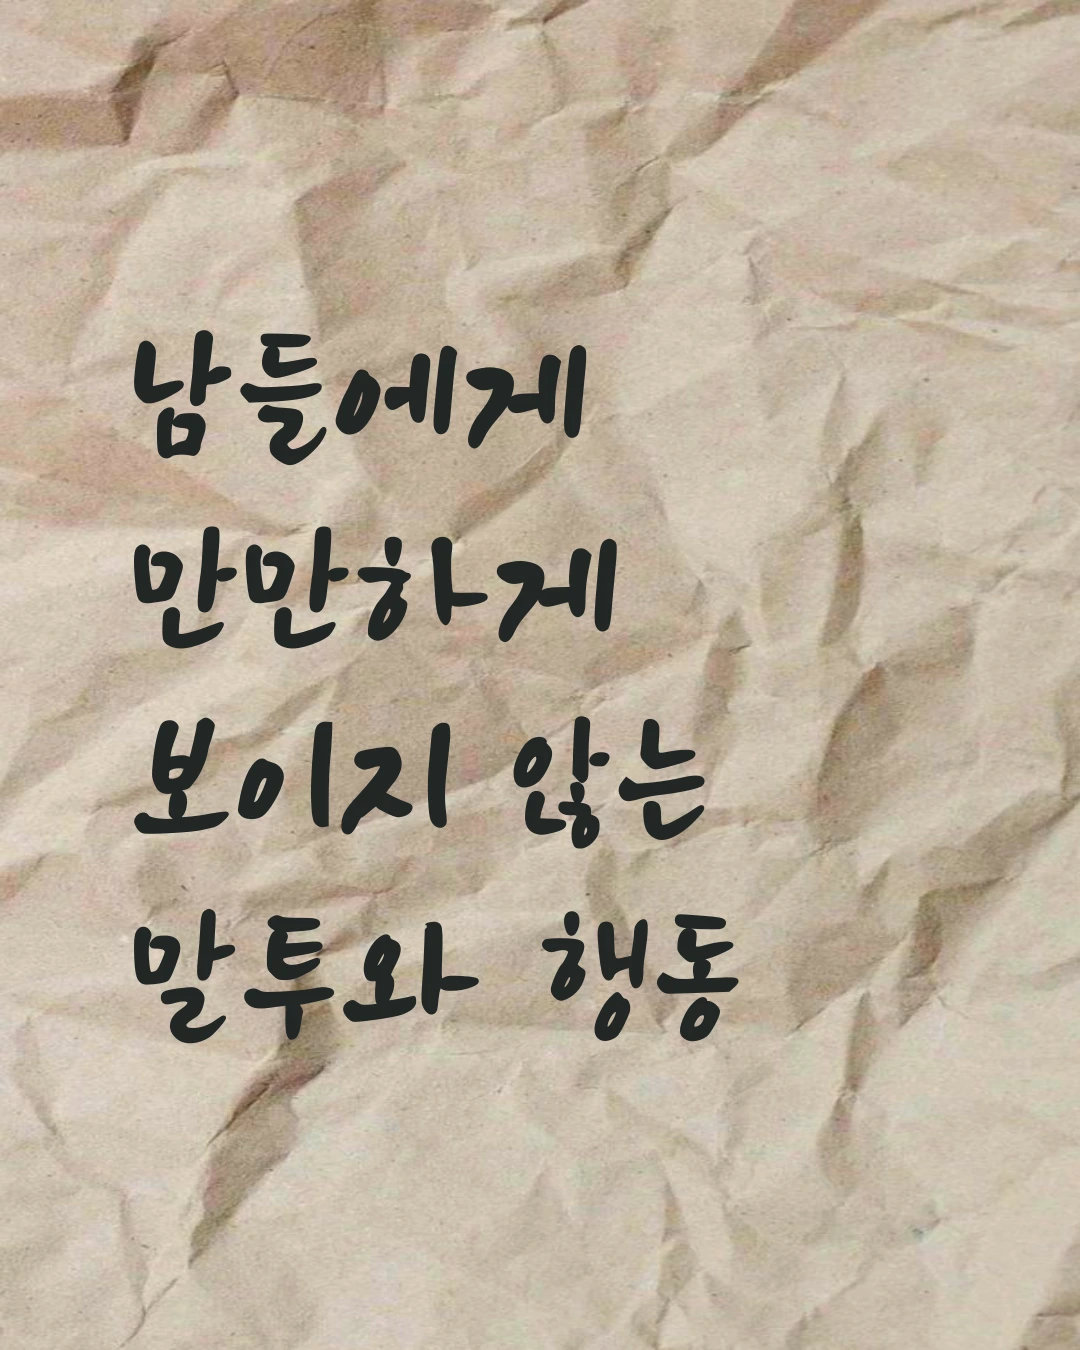 남들에게
만만하게
보이지 않는
말투와 행동